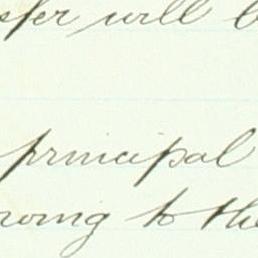 sfer will b
principal
rowing to the